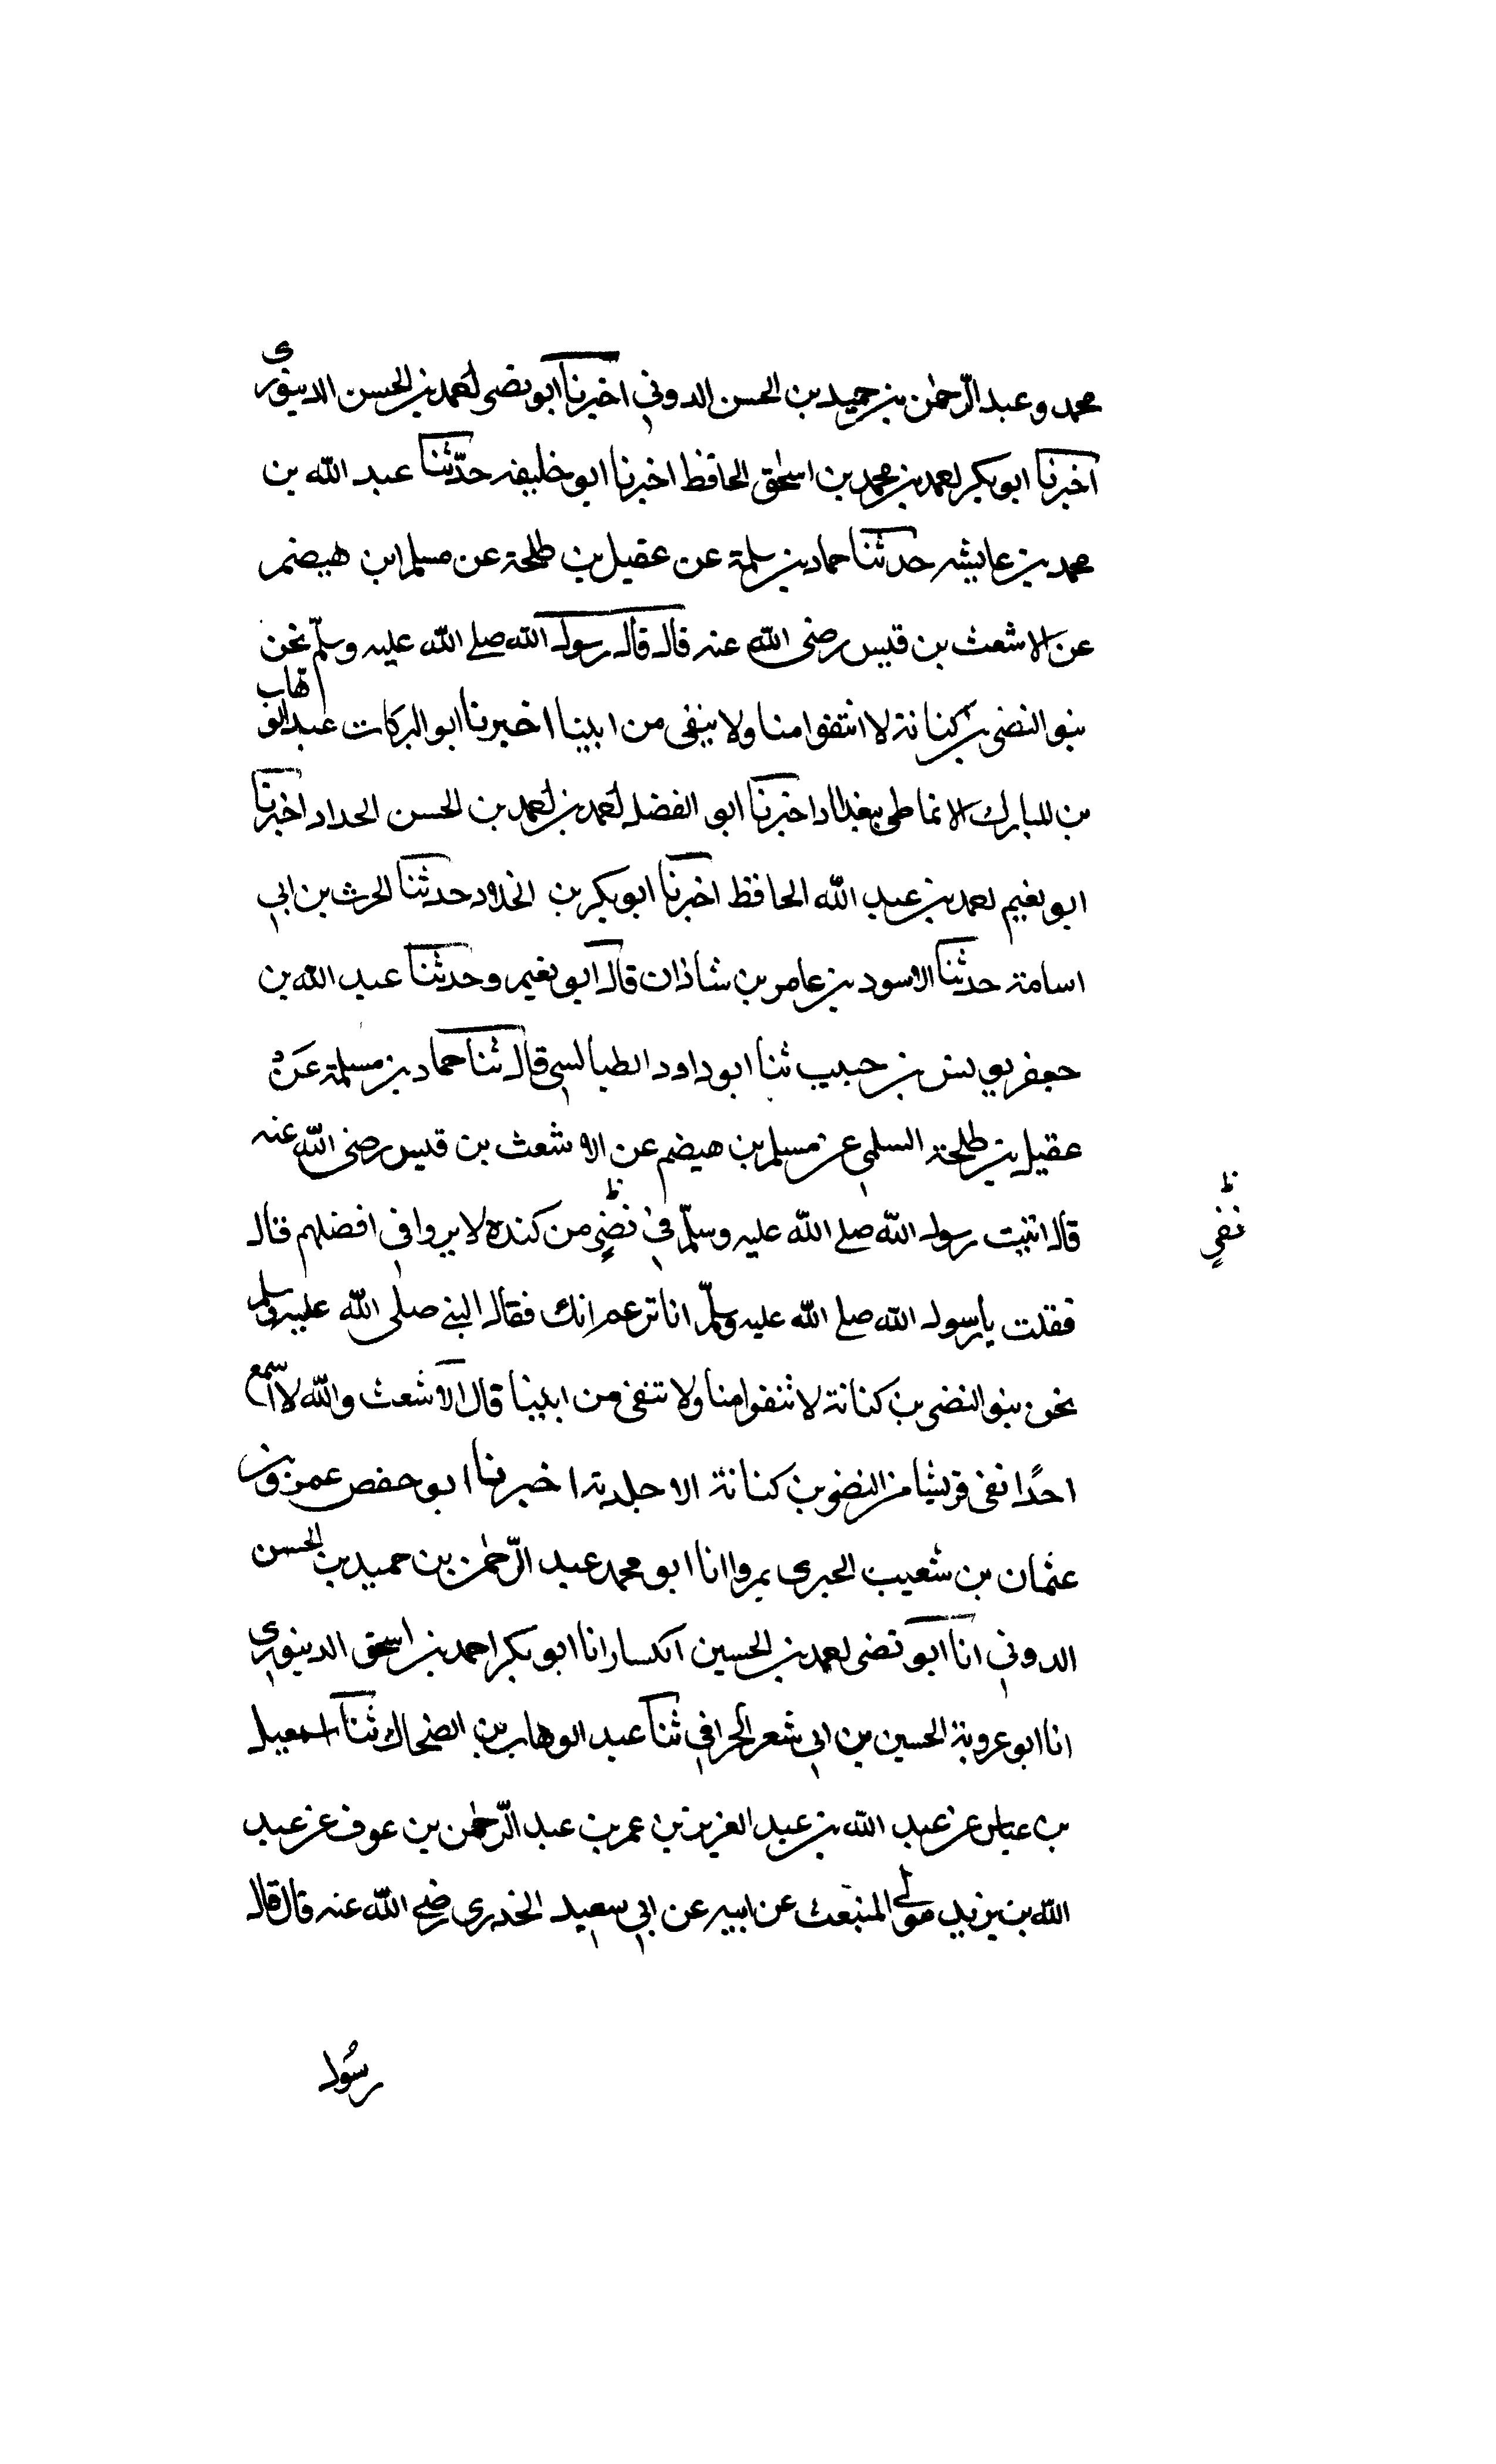 محمد وعبد الرّحمٰن بن حميد بن الحسن الدوني اخبرنا ابو نضى احمد بن الحسن الدينوري
اخبرنا ابو بكر احمد بن محمد بن اسحٰق الحافظ اخبرنا ابو خليفه حدّثنا عبد الله بن
محمد بن عايشه حدثنا حماد بن سلمة عن عقيل بن طلحة عن مسلم ابن هيضم
عن الاشعث بن قيس رضى الله عنه قال قال رسول الله صلے الله عليه وسلّم نحن
بنو النضى بن كنانة لا انتفوا منا ولا ينفى من ابينا اخبرنا ابو البركات عبد الوهاب
بن المبارك الانماطى ببغداد اخبرنا ابو الفضل احمد بن احمد بن الحسن الحداد اخبرنا
ابو نعيم احمد بن عبد الله الحافظ اخبرنا ابو بكر بن الخلاد حدثنا الحرث بن ابي
اسامة حدثنا الاسود بن عامر بن شاذان قال ابو نعيم وحدثنا عبد الله بن
جعفر بن حبيب ثنا ابو داود الطيالسي قال ثنا حماد بن مسلمة عَنْ
عقيل بن طلحة السلمي عن مسلم بن هيضم عن الاشعث بن قيس رضى الله عنه
قال اتيت رسول الله صلے الله عليه وسلّم في نضيٍ من كنده لا يرواني افضلهم قال
نفيٍ
فقلت يا رسول الله صلے الله عليه وسلّم انا نزعم انك فقال النبے صلى الله عليه وسلم
نحن بنو النضى بن كنانة لا ننفوا منا ولا ننفى من ابينا قال الاشعث والله لا اسمع
احدًا نفى قريشا من النضو بن كنانة الا جلدته اخبرنا ابو حفص عمرو بن
عثمان بن شعيب الحبرى بمرو انا ابو محمد عبد الرّحمٰن بن حميد بن الحسن
الدوني انا ابو نضى احمد بن الحسين الكسار انا ابو بكر احمد بن اسحق الدينوري
انا ابو عروبة الحسين بن ابي شعر الحراني ثنا عبد الوهاب بن الضحاك ثنا اسمعيل
بن عياس عن عبد الله بن عبد العزيز بن عمر بن عبد الرّحمٰن بن عوف عن عبد
الله بن يزيد مولے المنبعث عن ابيه عن ابي سعيد الخدرى رضے الله عنه قال قال
رسُول